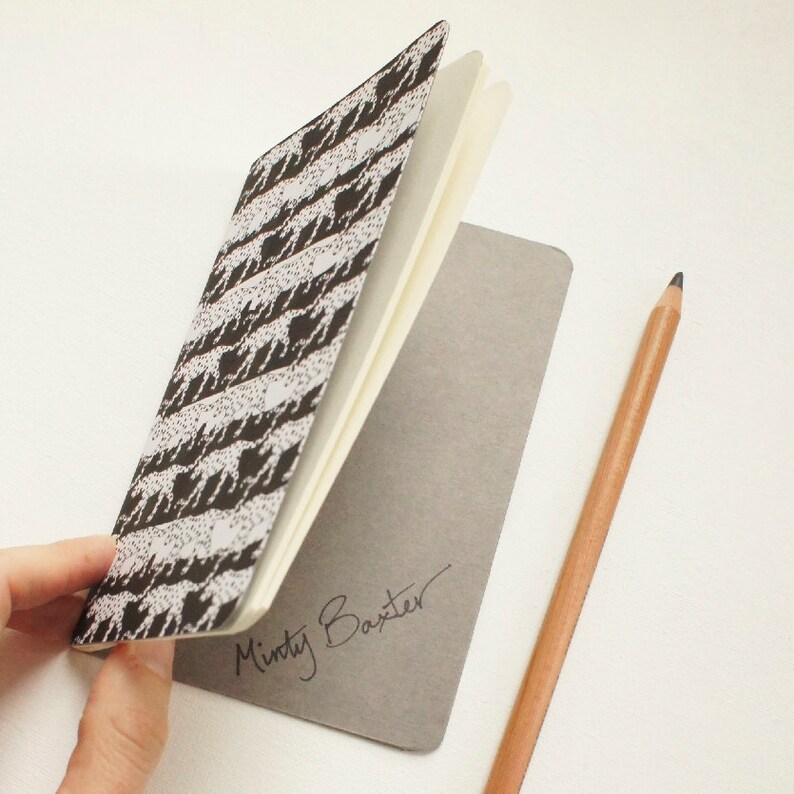 Minty Baxter